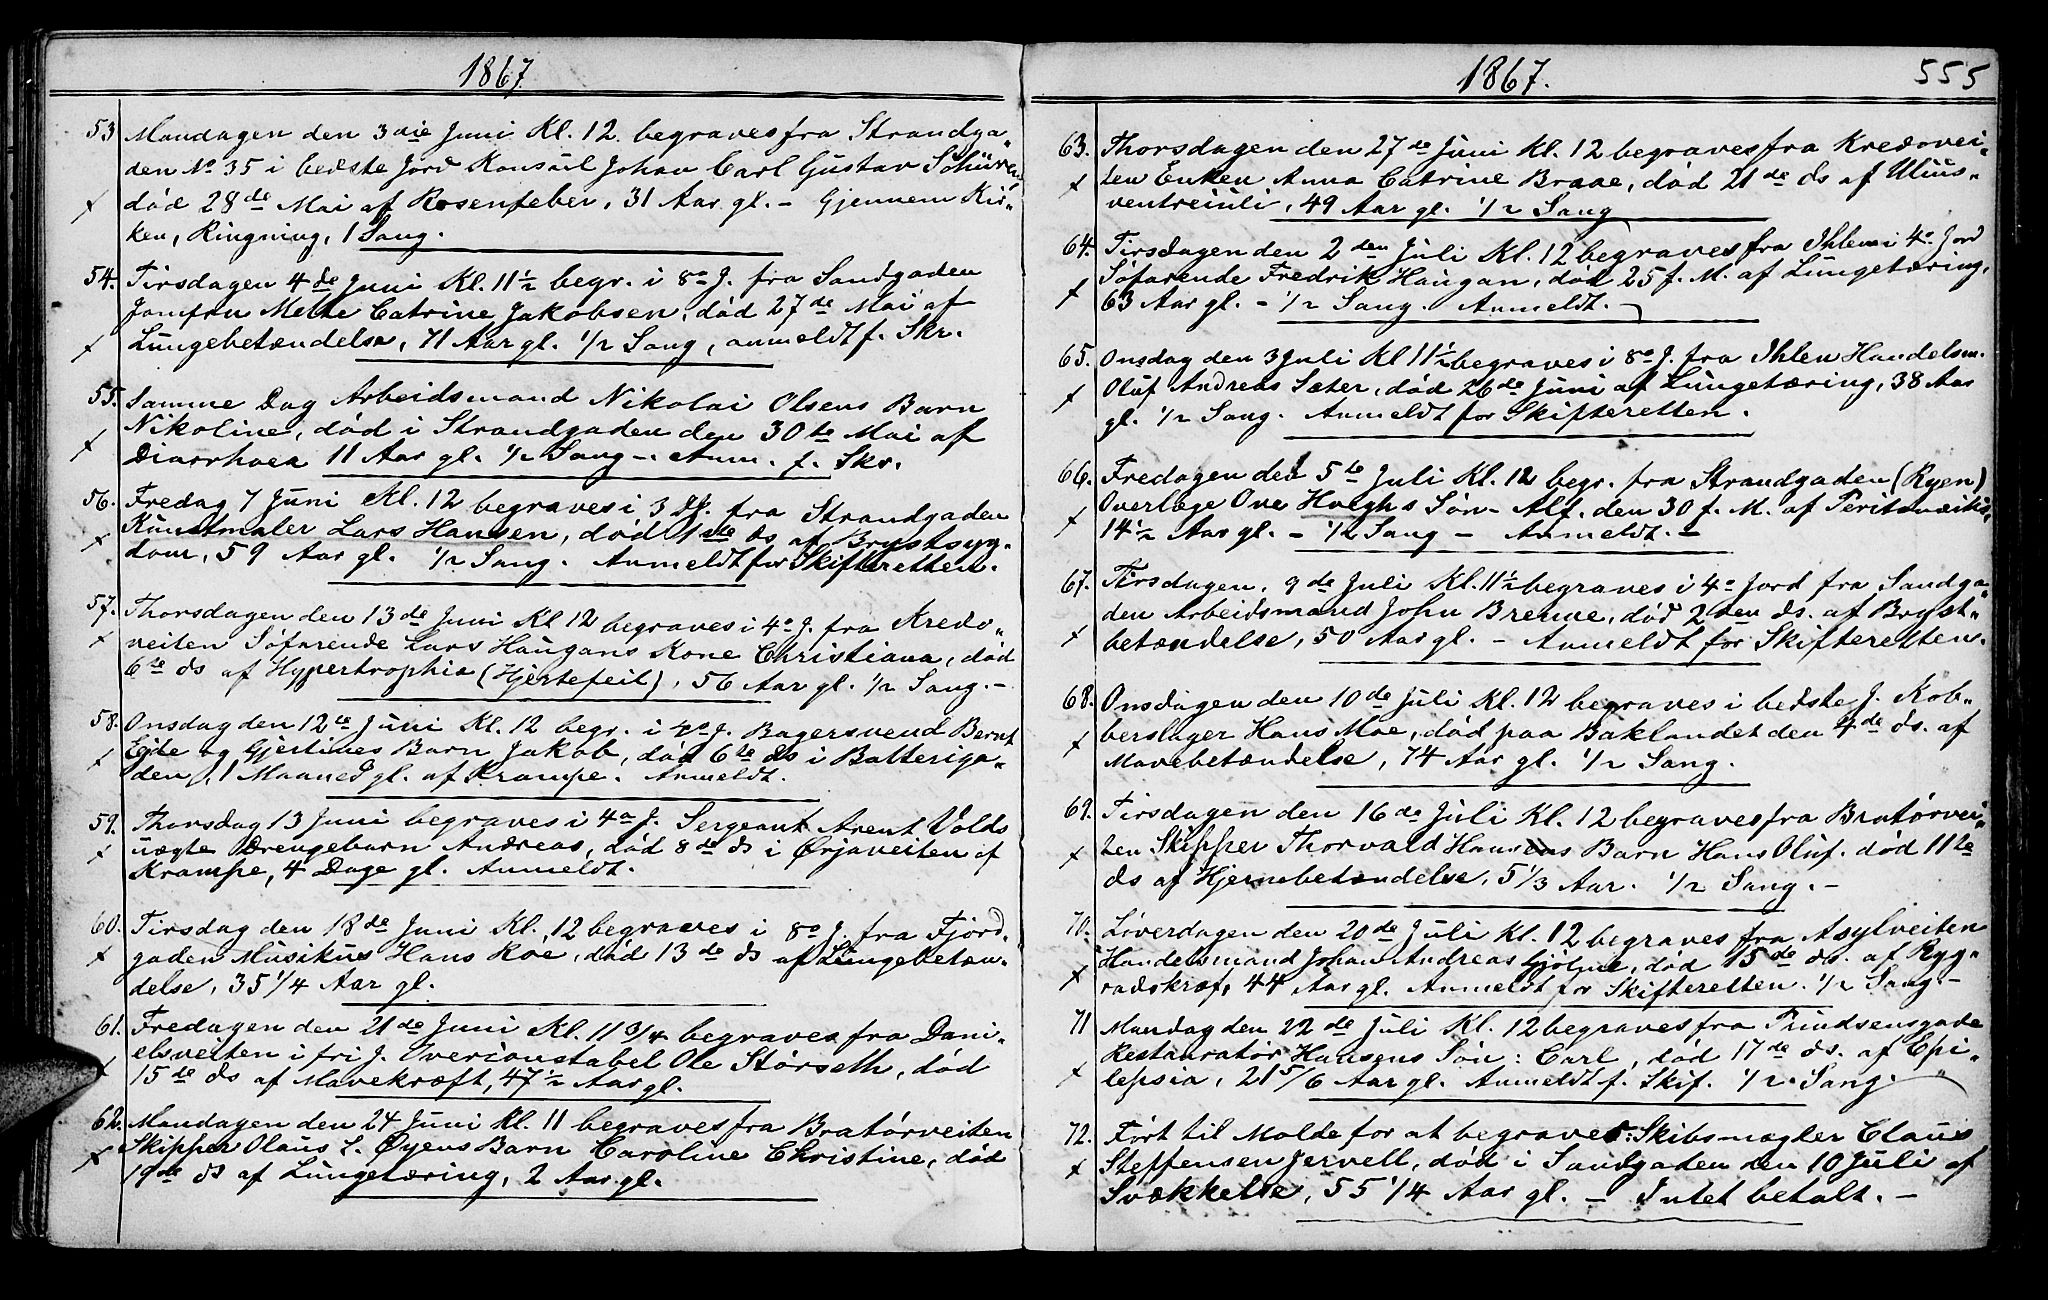 1867
53 Mandagen den 3die Juni Kl. 12 begraves fra Strandga-
den No 35 i bedste Jord Konsul Johan Carl Gustav Schüren
død 28de Mai af Rosenfeber, 31 Aar gl. - Gjennem Kir-
ken, Ringning, 1 Sang.
54. Tirsdagen 4de Juni Kl. 11½ begr. i 8a J. fra Sandgaden
Jomfru Mette Catrine Jakobsen, død 27de Mai af
Lungebetændelse, 71 Aar gl. ½ Sang, anmeldt f. Skr.
55. Samme Dag Arbeidsmand Nikolai Olsens Barn
Nikoline, død i Strandgaden den 30te Mai af
Diarrhoea 11 Aar gl. ½ Sang -. Anm. f. Skr.
56. Fredag 7 Juni Kl. 12 begraves i 3 J. fra Strandgaden
Kunstmaler Lars Hansen, død 1ste ds af Brystsyg-
dom, 59 Aar gl. ½ Sang. Anmeldt for Skifteretten.
57. Thorsdagen den 13de Juni Kl 12 begraves i 4a J. fra Kredo-
veiten Søfarende Lars Haugans Kone Christiana, død
6te ds af Hypertrophia (Hjertefeil), 56 Aar gl. ½ Sang. -
58. Onsdag den 12te Juni Kl. 12 begr. i 4a J. Bagersvend Bernt
og Gjertines Barn Jakob, død 6te ds i Batteriga-
den, 1 Maaned gl. af Krampe. Anmeldt.
59. Thorsdag 13 Juni begraves i 4a J. Sergeant Arent Volds
uægte Drengebarn Andreas, død 8de ds i Ørjaveiten af
Krampe, 4 Dage gl. Anmeldt.
60. Tirsdag den 18de Juni Kl. 12 begraves i 8a J. fra Fjord-
gaden Musikus Hans Roe, død 13de ds af Lungebetæn-
delse, 35¼ Aar gl.
61. Fredagen den 21de Juni Kl. 11¾ begraves fra Dani-
elsveiten i fri J. Overconstabel Ole Størseth, død
15de ds af Mavekræft, 47½ Aar gl.
62. Mandagen den 24 Juni Kl. 11 begraves fra Bratørveiten
Skipper Olaus L. Øyens Barn Caroline Christine, død
19de ds af Lungetæring, 2 Aar gl.
1867. 555
63. Thorsdagen den 27de Juni Kl. 12 begraves fra Kredovei-
ten Enken Anna Catrine Braae, død 21de ds af
49 Aar gl. ½ Sang
64. Tirsdagen den 2den Juli Kl. 12 begraves fra Ihlen i 4a Jord
Søfarende Fredrik Haugan, død 25 f. M. af Lungetæring,
63 Aar gl. - ½ Sang. Anmeldt.
65. Onsdag den 3 Juli Kl 11½ begraves i 8a J. fra Ihlen Handelsm.
Oluf Andreas Sæter, død 26de Juni af Lungetæring, 38 Aar
gl. ½ Sang. Anmeldt for Skifteretten.
66. Fredagen den 5te Juli Kl. 12 begr. fra Strandgaden (Ryen)
Overlæge Ove Høeghs Søn - Alf. den 30 f. M. af Peritonæitis,
14½ Aar gl. - ½ Sang - Anmeldt. -
67. Tirsdagen, 9de Juli Kl. 11½ begraves i 4a Jord fra Sandga-
den Arbeidsmand John Brenne, død 2den ds. af Bryst-
betændelse, 50 Aar gl. - Anmeldt for Skifteretten.
68. Onsdagen den 10de Juli Kl. 12 begraves i bedste J. Kob-
berslager Hans Moe, død paa Baklandet den 4de ds. af
Mavebetændelse, 74 Aar gl. ½ Sang.
69. Tirsdagen den 16de Juli Kl. 12 begraves fra Bratørvei-
ten Skipper Thorvald Hansens Barn Hans Oluf. død 11te
ds af Hjernebetændelse, 5⅓ Aar. ½ Sang. -
70. Løverdagen den 20de Juli Kl. 12 begraves fra Asylveiten
Handelsmand Johan Andreas Gjølme, død 15de ds. af Ryg-
radskræf, 44 Aar gl. Anmeldt for Skifteretten. ½ Sang. -
71 Mandag den 22de Juli Kl. 12 begraves fra
Restauratør Hansens Søn: Carl, død 17de ds. af Epi-
lepsia, 21 5/6 Aar gl. Anmeldt f. Skif. ½ Sang.
72. Ført til Molde for at begraves: Skibsmægler Claus
Steffensen Jervell, død i Sandgaden den 10 Juli af
Svækkelse, 55¼ Aar gl. - Intet betalt. -